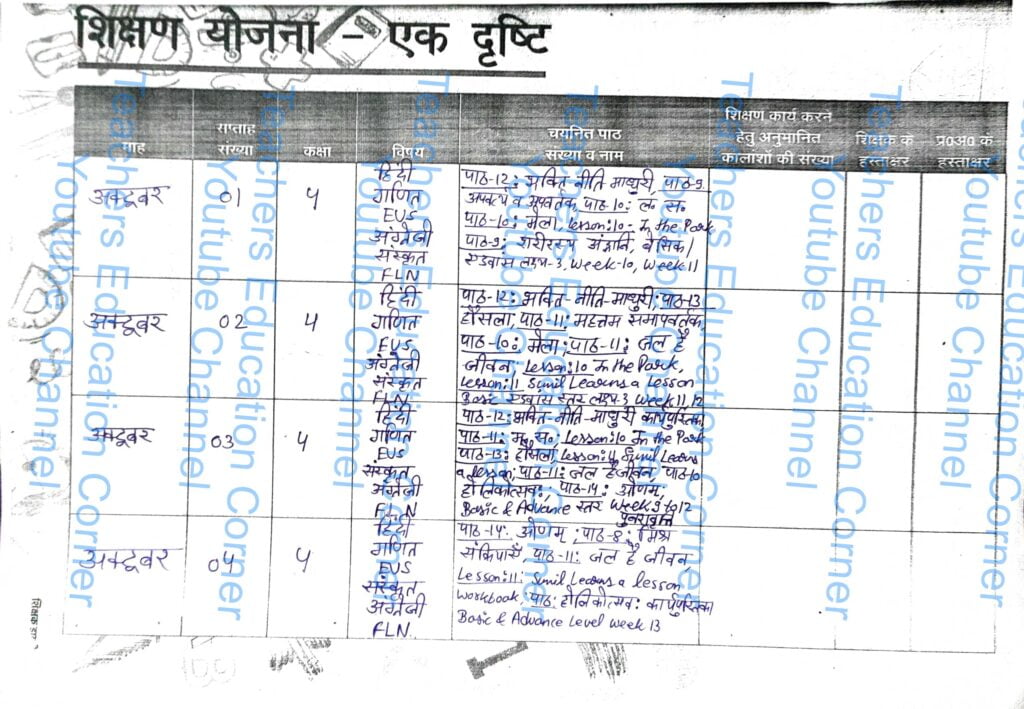 शिक्षण योजना - एक दृष्टि
माह
सप्ताह
संख्या
कक्षा
विषय
चयनित पाठ
संख्या व नाम
शिक्षण कार्य करने
हेतु अनुमानित
कालाशों की संख्या
शिक्षक के
हस्ताक्षर
प्र०अ० के
हस्ताक्षर
अक्टूबर
01
4
हिंदी
गणित
EVS
अंग्रेजी
संस्कृत
FLN
पाठ-12: भक्ति-नीति माधुरी, पाठ-9
अपवर्त्य व अपवर्तक, पाठ-10: ल० स०
पाठ-10: मेला, Lesson:10- In the Park
पाठ-9: बेसिक/
एडवांस लक्ष्य-3, Week-10, Week 11
अक्टूबर
02
4
हिंदी
गणित
EVS
अंग्रेजी
संस्कृत
FLN
पाठ-12: भक्ति-नीति-माधुरी, पाठ-13
हौसला, पाठ-11: महत्तम समापवर्तक,
पाठ-10: मेला, पाठ-11: जल है
जीवन, Lesson:10 In the Park,
Lesson:11 Sunil Learns a Lesson
Basic एडवांस स्तर लक्ष्य-3 Week 11,12
अक्टूबर
03
4
हिंदी
गणित
EVS
संस्कृत
अंग्रेजी
FLN
पाठ-12: भक्ति-नीति-माधुरी कार्यपुस्तिका,
पाठ-11: म० स०, Lesson:10 In the Park
पाठ-13: हौसला, Lesson:11 Sunil Learns
a lesson, पाठ-11: जल है जीवन, पाठ-10
होलिकोत्सव:, पाठ-14: ओणम,
Basic & Advance स्तर Week 9 to 12
पुनरावृत्ति
अक्टूबर
04
4
हिंदी
गणित
EVS
संस्कृत
अंग्रेजी
FLN
पाठ-14: ओणम, पाठ-8: मिश्र
संक्रियाएँ, पाठ-11: जल है जीवन,
Lesson:11: Sunil Learns a lesson
Workbook, पाठ: होलिकोत्सव: कार्यपुस्तिका
Basic & Advance Level Week 13
Teachers Education Corner
Youtube Channel
Teachers Education Corner
Youtube Channel
Teachers Education Corner
Youtube Channel
Teachers Education Corner
Youtube Channel
Teachers Education Corner
Youtube Channel
Teachers Education Corner
Youtube Channel